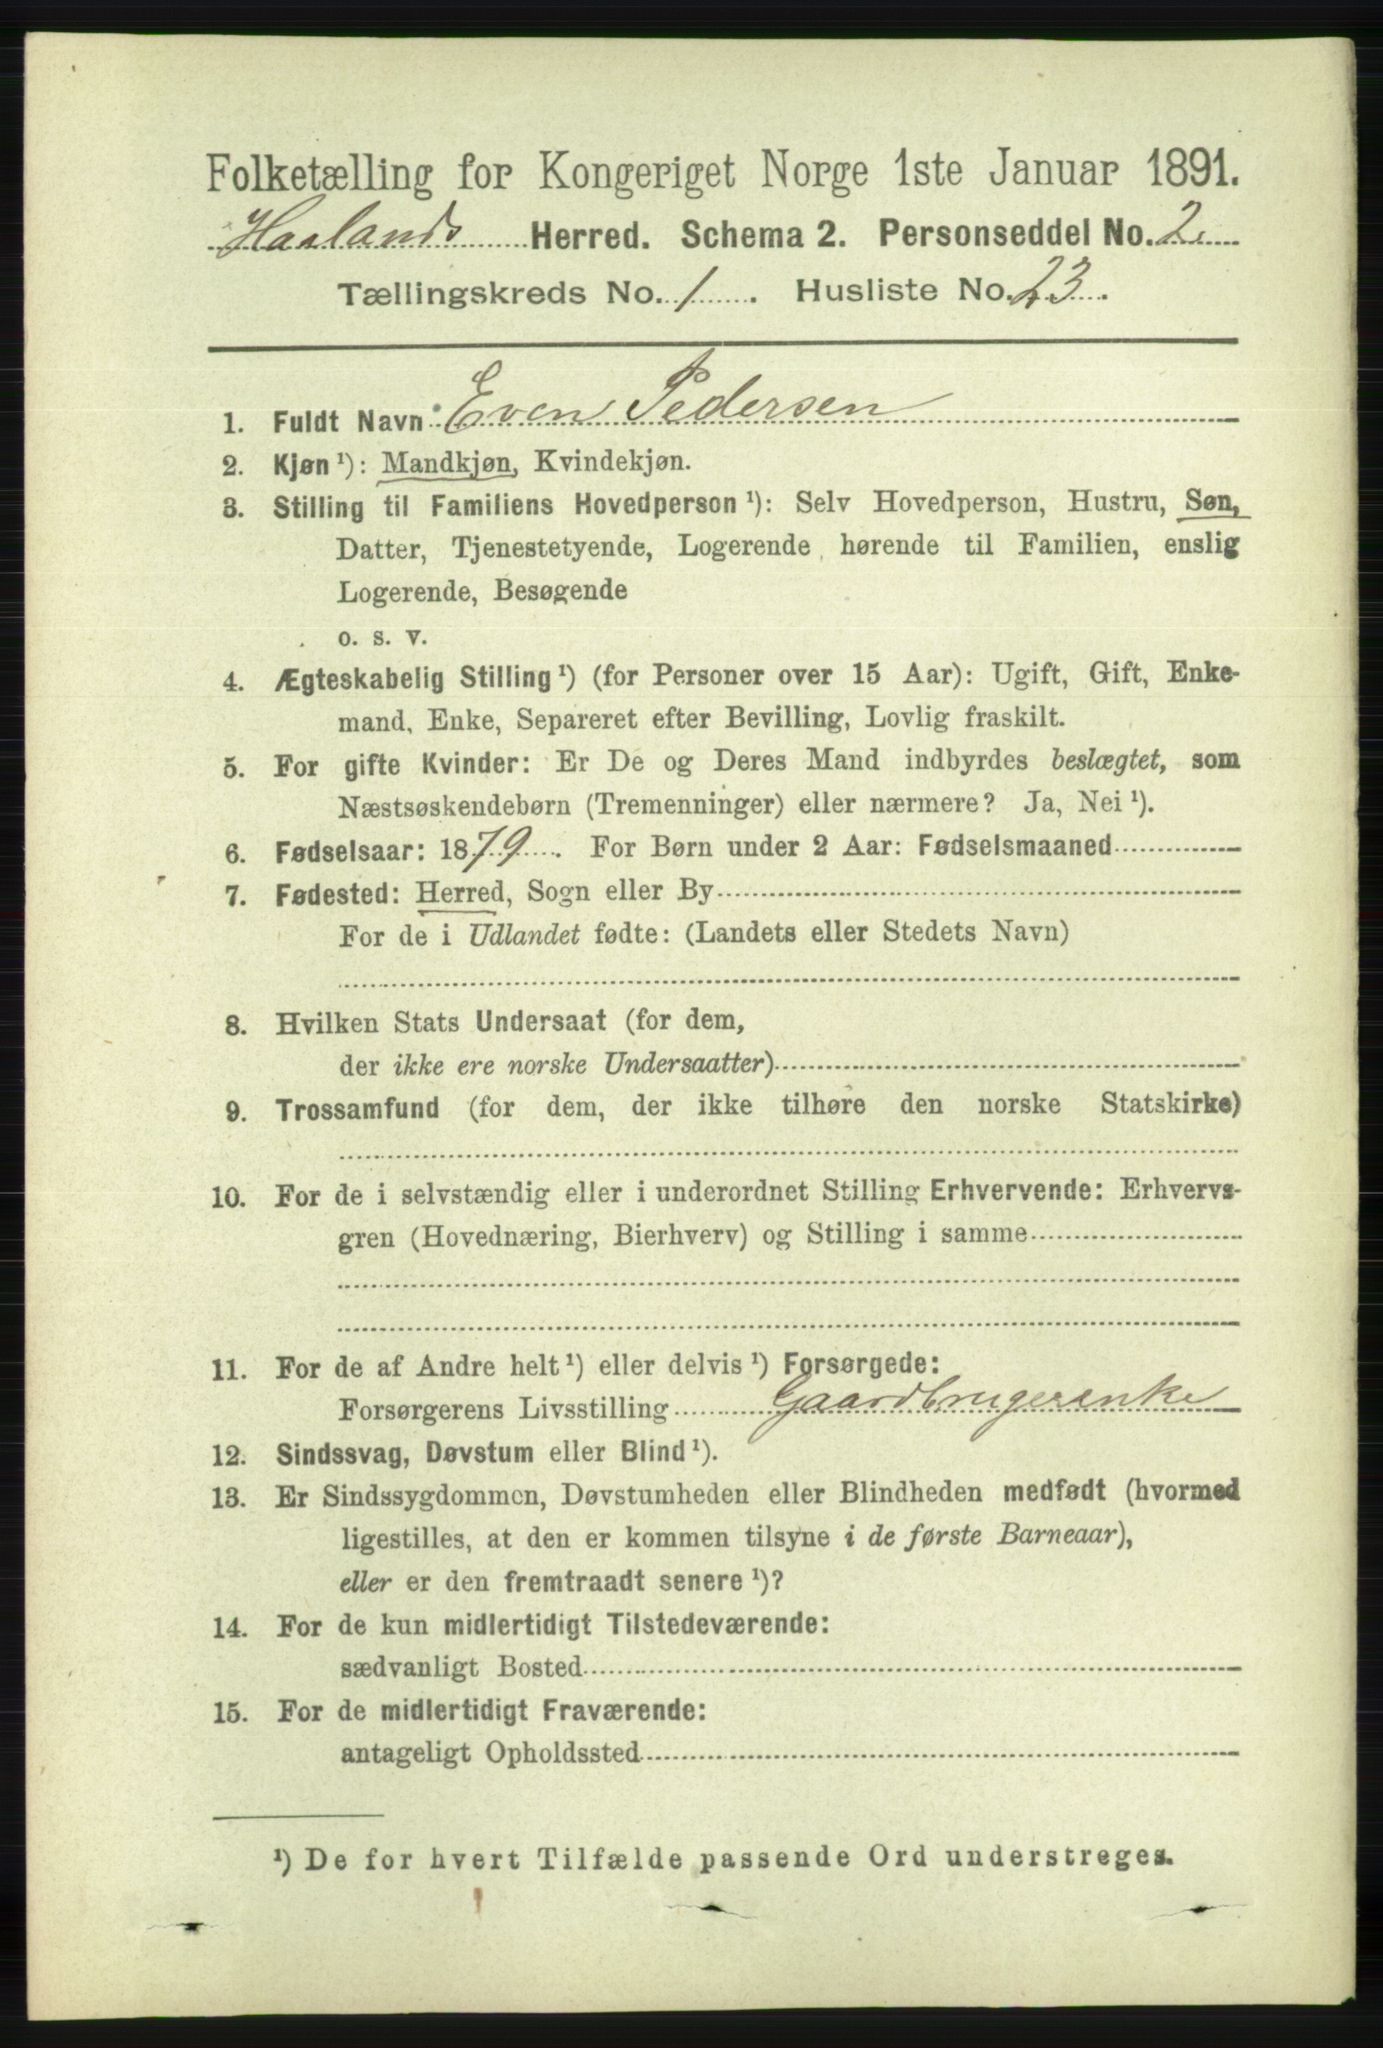 Folketælling for Kongeriget Norge 1ste Januar 1891.
Haalands Herred. Schema 2. Personseddel No. 2.
Tællingskreds No. 1. Husliste No. 23.
1. Fuldt Navn: Even Pedersen
2. Kjøn ¹): Mandkjøn, Kvindekjøn.
3. Stilling til Familiens Hovedperson ¹): Selv Hovedperson, Hustru, Søn,
Datter, Tjenestetyende, Logerende hørende til Familien, enslig
Logerende, Besøgende
o. s. v.
4. Ægteskabelig Stilling ¹) (for Personer over 15 Aar): Ugift, Gift, Enke-
mand, Enke, Separeret efter Bevilling, Lovlig fraskilt.
5. For gifte Kvinder: Er De og Deres Mand indbyrdes beslægtet, som
Næstsøskendebørn (Tremenninger) eller nærmere? Ja, Nei ¹).
6. Fødselsaar: 1879. For Børn under 2 Aar: Fødselsmaaned
7. Fødested: Herred, Sogn eller By
For de i Udlandet fødte: (Landets eller Stedets Navn)
8. Hvilken Stats Undersaat (for dem,
der ikke ere norske Undersaatter)
9. Trossamfund (for dem, der ikke tilhøre den norske Statskirke)
10. For de i selvstændig eller i underordnet Stilling Erhvervende: Erhvervs-
gren (Hovednæring, Bierhverv) og Stilling i samme
11. For de af Andre helt ¹) eller delvis ¹) Forsørgede:
Forsørgerens Livsstilling Gaardbrugerenke
12. Sindssvag, Døvstum eller Blind ¹).
13. Er Sindssygdommen, Døvstumheden eller Blindheden medfødt (hvormed
ligestilles, at den er kommen tilsyne i de første Barneaar),
eller er den fremtraadt senere ¹)?
14. For de kun midlertidigt Tilstedeværende:
sædvanligt Bosted
15. For de midlertidigt Fraværende:
antageligt Opholdssted
¹) De for hvert Tilfælde passende Ord understreges.